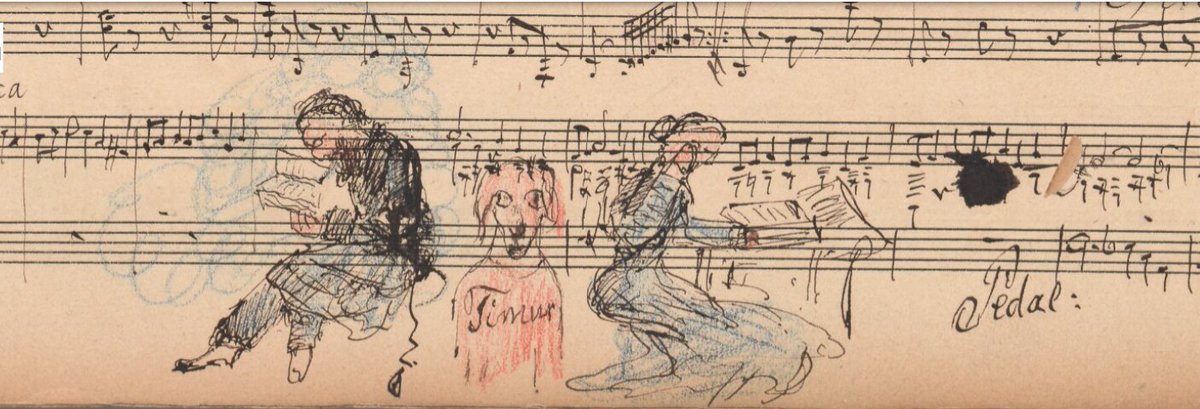 ca
Timur
Pedal: